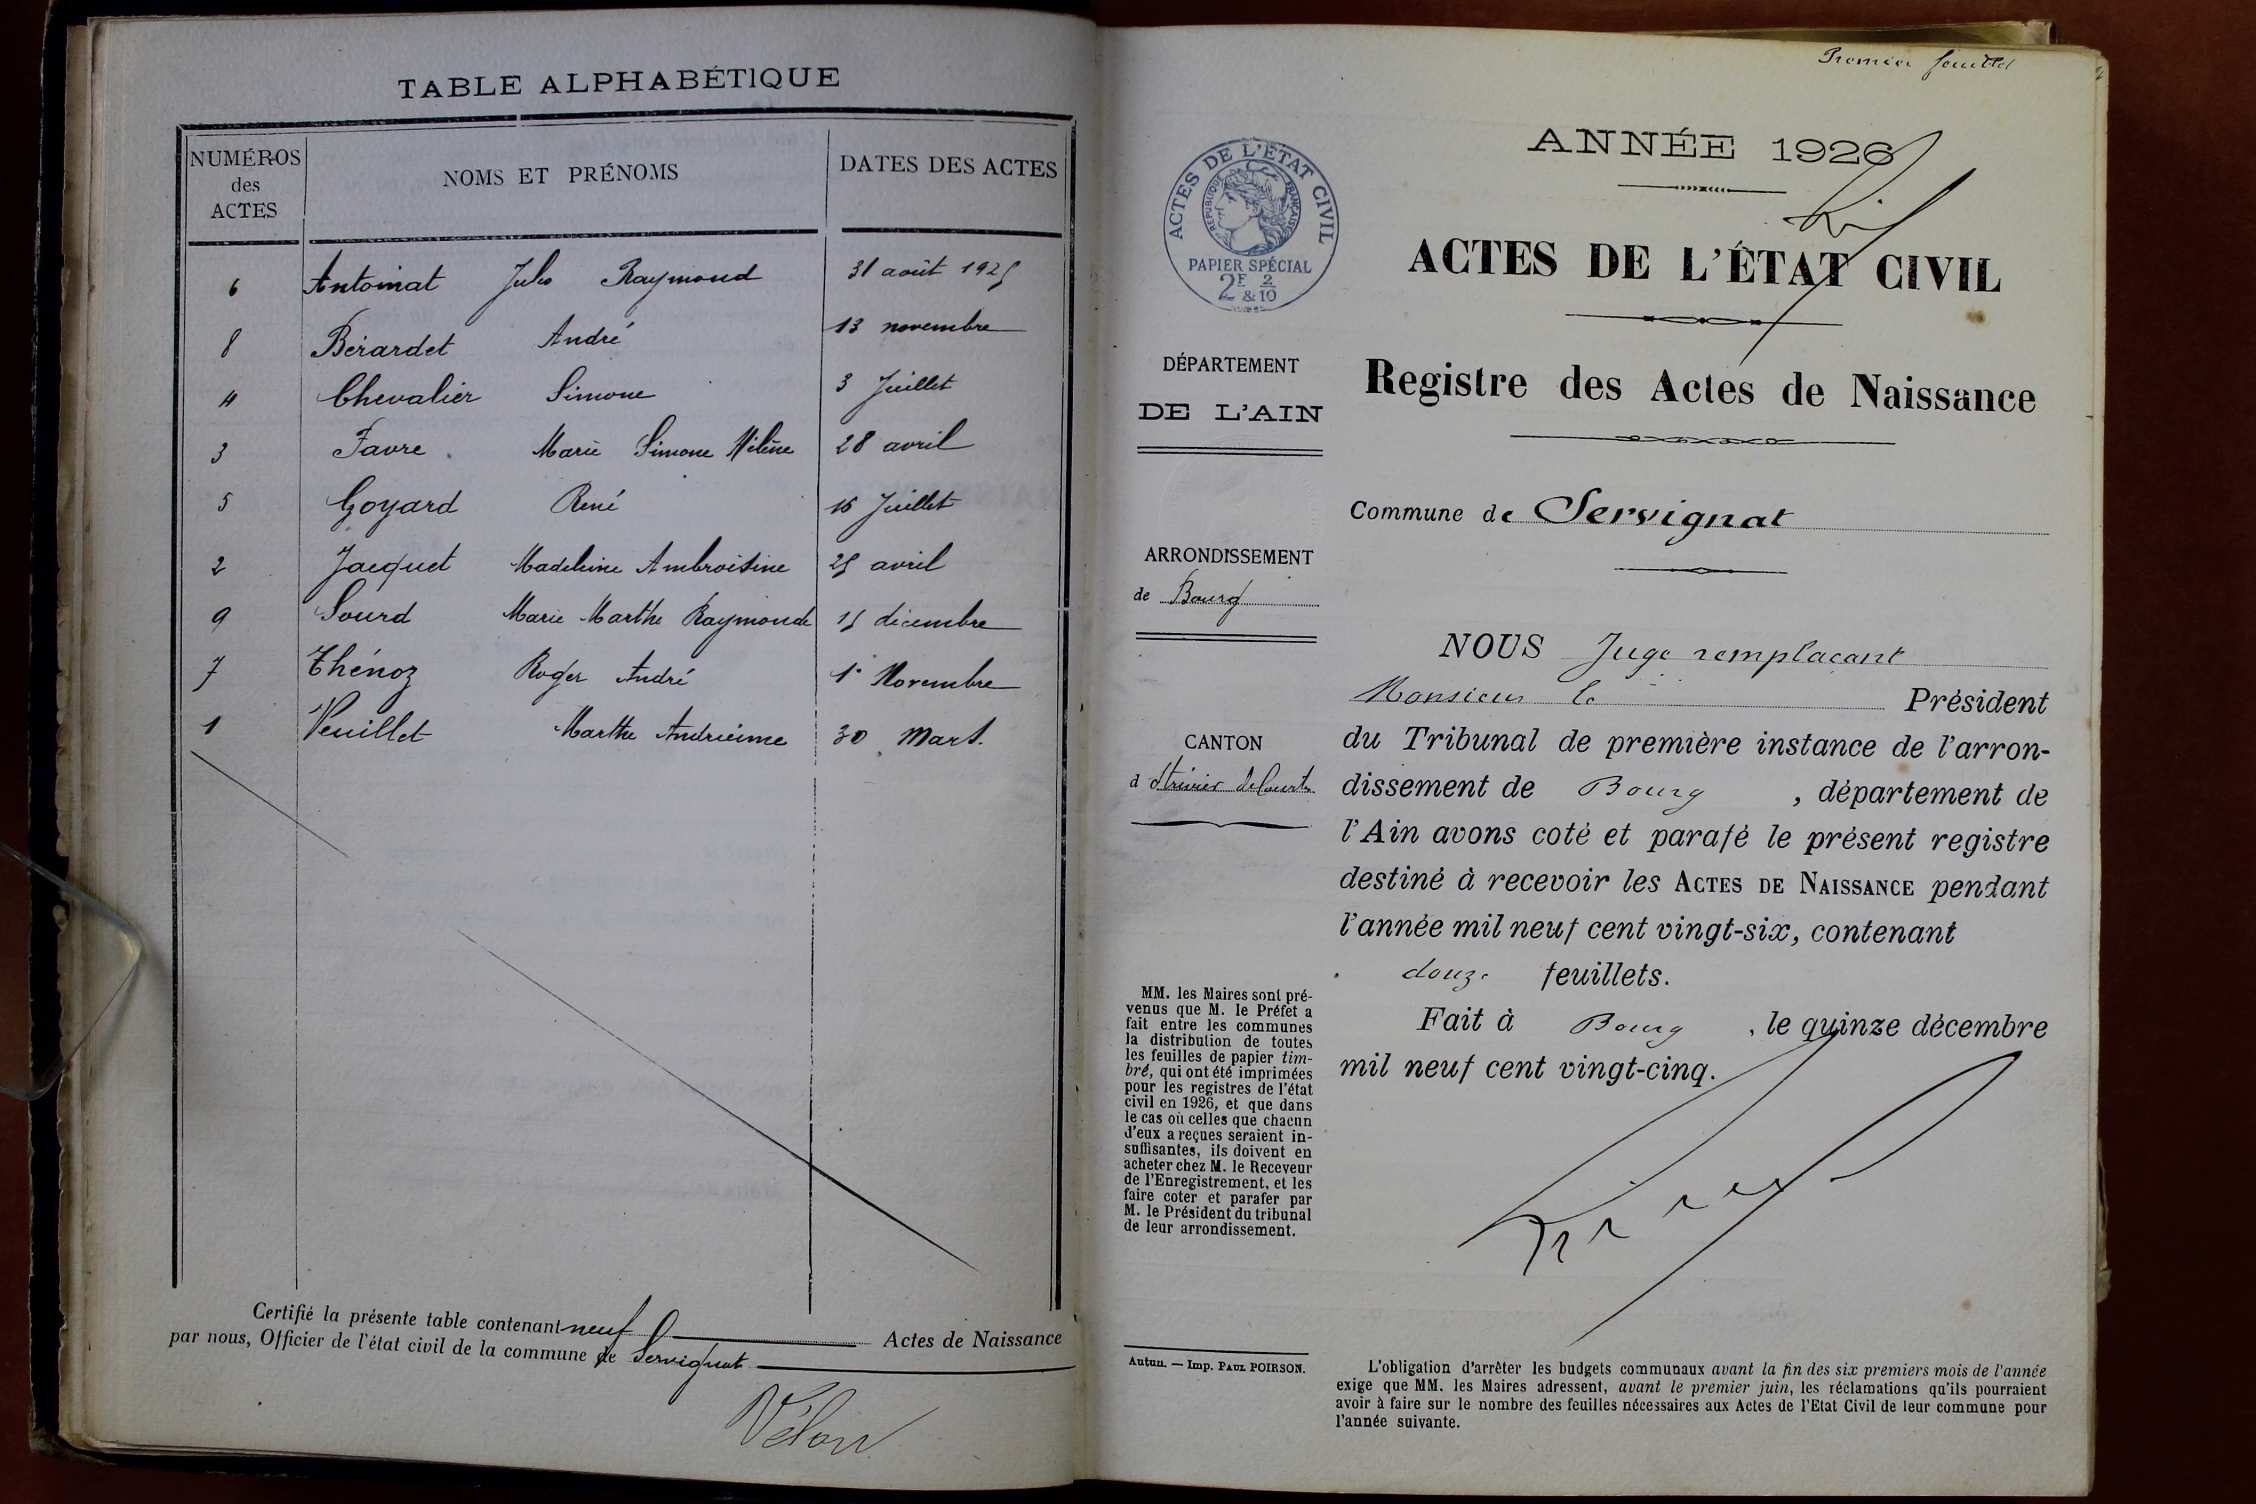 TABLE ALPHABÉTIQUE
NUMÉROS des ACTES NOMS ET PRÉNOMS DATES DES ACTES
6 Antoinat Jules Raymond 31 août 1925
8 Bérardet André 13 novembre
4 Chevalier Simone 3 Juillet
3 Favre Marie Simone Hélène 28 avril
5 Goyard René 16 Juillet
2 Jacquet Madeleine Ambroisine 25 avril
9 Sourd Marie Marthe Raymonde 15 décembre
7 Thénoz Roger André 1er Novembre
1 Veuillet Marthe Andrienne 30 Mars.
Certifié la présente table contenant neuf Actes de Naissance
par nous, Officier de l'état civil de la commune de Servignat
Premier feuillet
ANNÉE 1926
ACTES DE L'ÉTAT CIVIL
RÉPUBLIQUE FRANÇAISE
PAPIER SPÉCIAL
2E & 2/10
ACTES DE L'ÉTAT CIVIL
Registre des Actes de Naissance
DÉPARTEMENT
DE L'AIN
Commune de Servignat
ARRONDISSEMENT
de Bourg
CANTON
d St Trivier de Courtes
NOUS Juge remplaçant
Monsieur le Président
du Tribunal de première instance de l'arron-
dissement de Bourg, département de
l'Ain avons coté et parafé le présent registre
destiné à recevoir les ACTES DE NAISSANCE pendant
l'année mil neuf cent vingt-six, contenant
douze feuillets.
Fait à Bourg, le quinze décembre
mil neuf cent vingt-cinq.
MM. les Maires sont pré-
venus que M. le Préfet a
fait entre les communes
la distribution de toutes
les feuilles de papier tim-
bré, qui ont été imprimées
pour les registres de l'état
civil en 1926, et que dans
le cas où celles que chacun
d'eux a reçues seraient in-
suffisantes, ils doivent en
acheter chez M. le Receveur
de l'Enregistrement, et les
faire coter et parafer par
M. le Président du tribunal
de leur arrondissement.
Autun. — Imp. PAUL POIRSON.
L'obligation d'arrêter les budgets communaux avant la fin des six premiers mois de l'année
exige que MM. les Maires adressent, avant le premier juin, les réclamations qu'ils pourraient
avoir à faire sur le nombre des feuilles nécessaires aux Actes de l'Etat Civil de leur commune pour
l'année suivante.